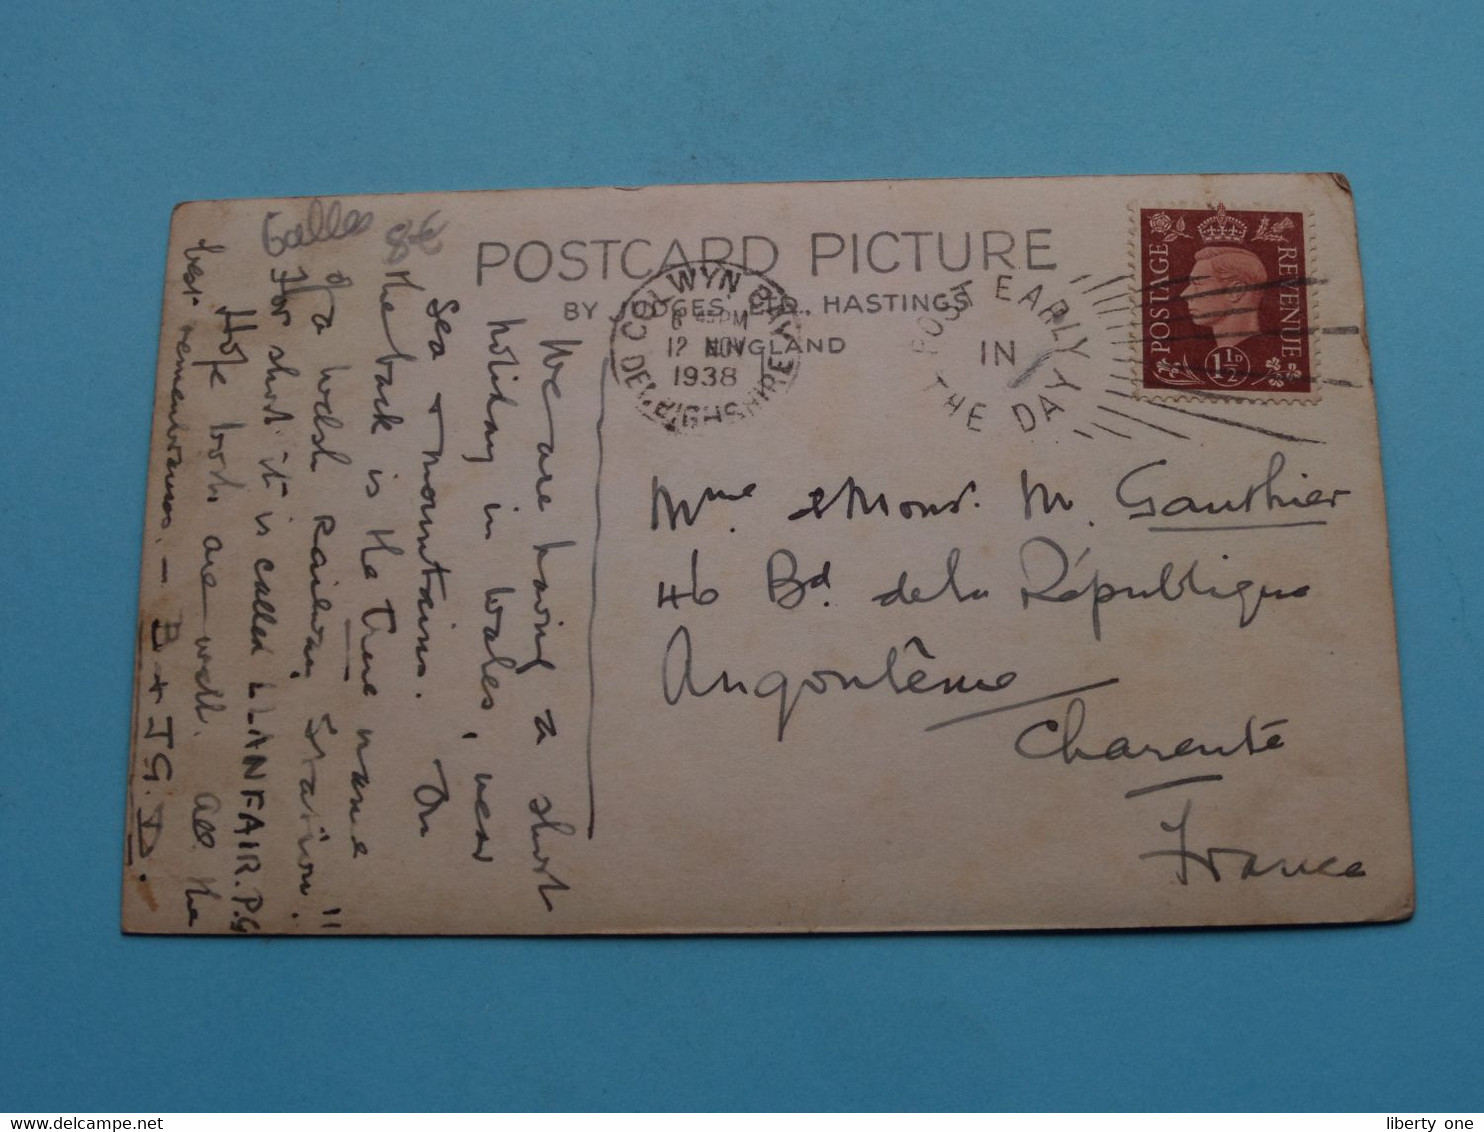 Galles
8€
POSTCARD PICTURE
BY JUDGES, LTD., HASTINGS
ENGLAND
COLWYN BAY
6 45 PM
12 NOV
1938
DENBIGHSHIRE
POST EARLY
IN
THE DAY
POSTAGE
REVENUE
1½D
We are having a short
holiday in Wales, near
Sea & mountains. On
the back is the true name
of a Welsh Railway Station!!
For short it is called LLANFAIR.P.G
Hope both are well. All the
best remembrances. — B + J G. D.
Mme. & Monsr. M. Gauthier
46 Bd. de la République
Angoulême
Charente
France
liberty one